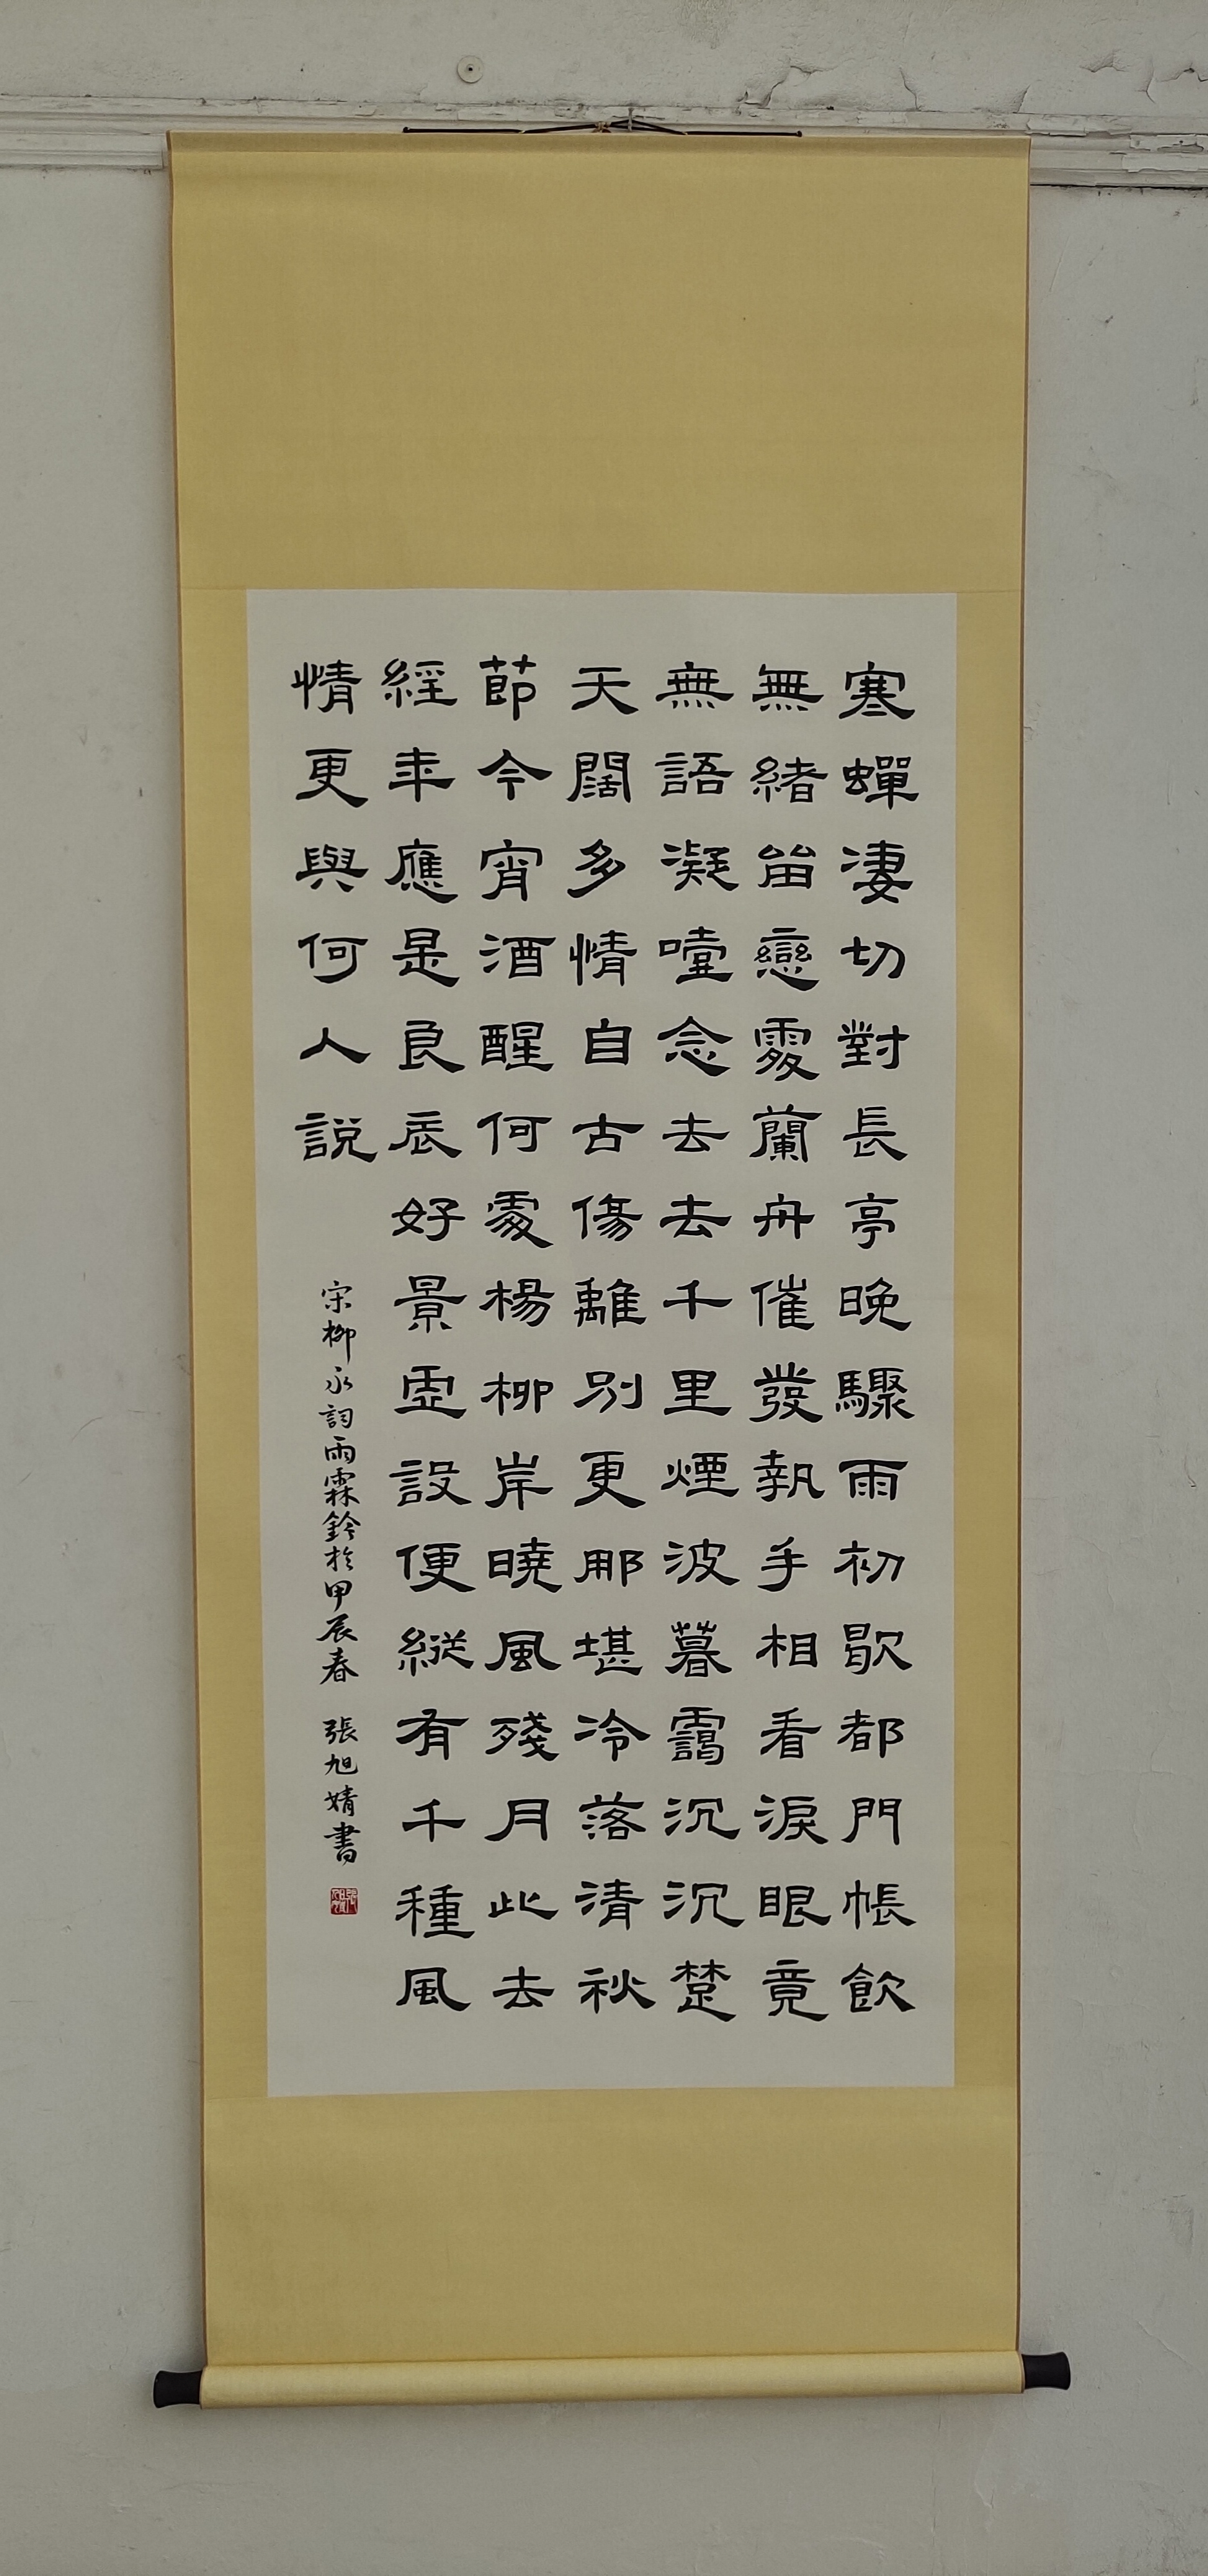 寒蟬凄切對長亭晚驟雨初歇都門帳飲
無緒畱戀處蘭舟催發執手相看淚眼竟
無語凝噎念去去千里煙波暮靄沉沉楚
天闊多情自古傷離別更那堪冷落清秋
節今宵酒醒何處楊柳岸曉風殘月此去
經年應是良辰好景虛設便縱有千種風
情更與何人説
宋柳永詞雨霖鈴於甲辰春 張旭婧書